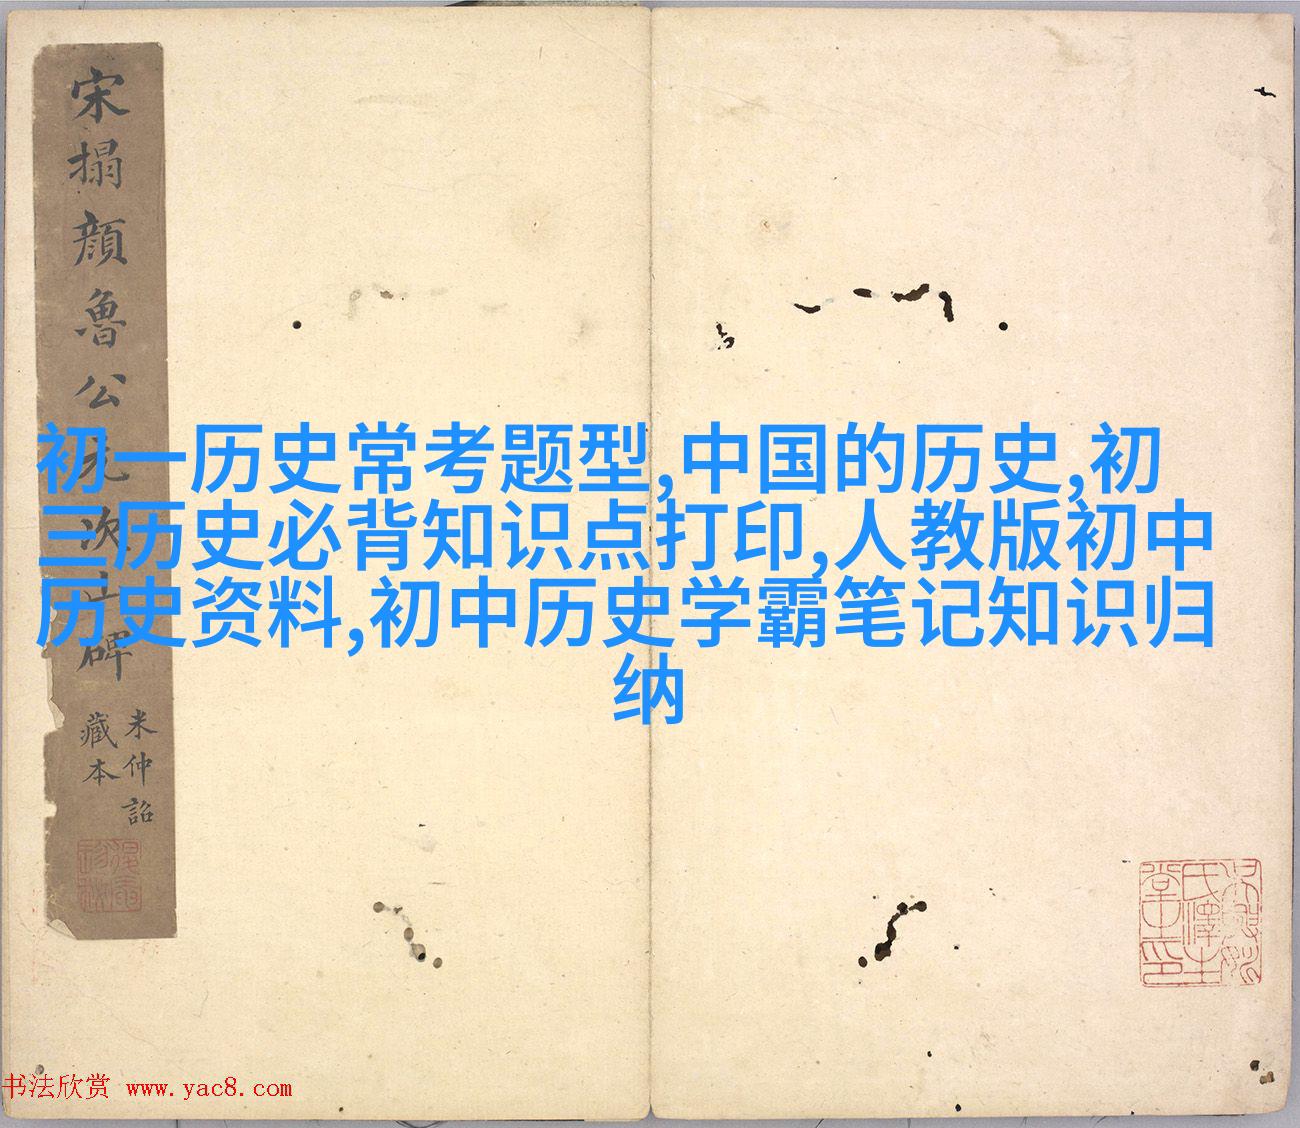 宋搨顏魯公元次山碑
米仲詔
藏本
初一历史常考题型,中国的历史,初
三历史必背知识点打印,人教版初中
历史资料,初中历史学霸笔记知识归
纳
书法欣赏 www.yac8.com